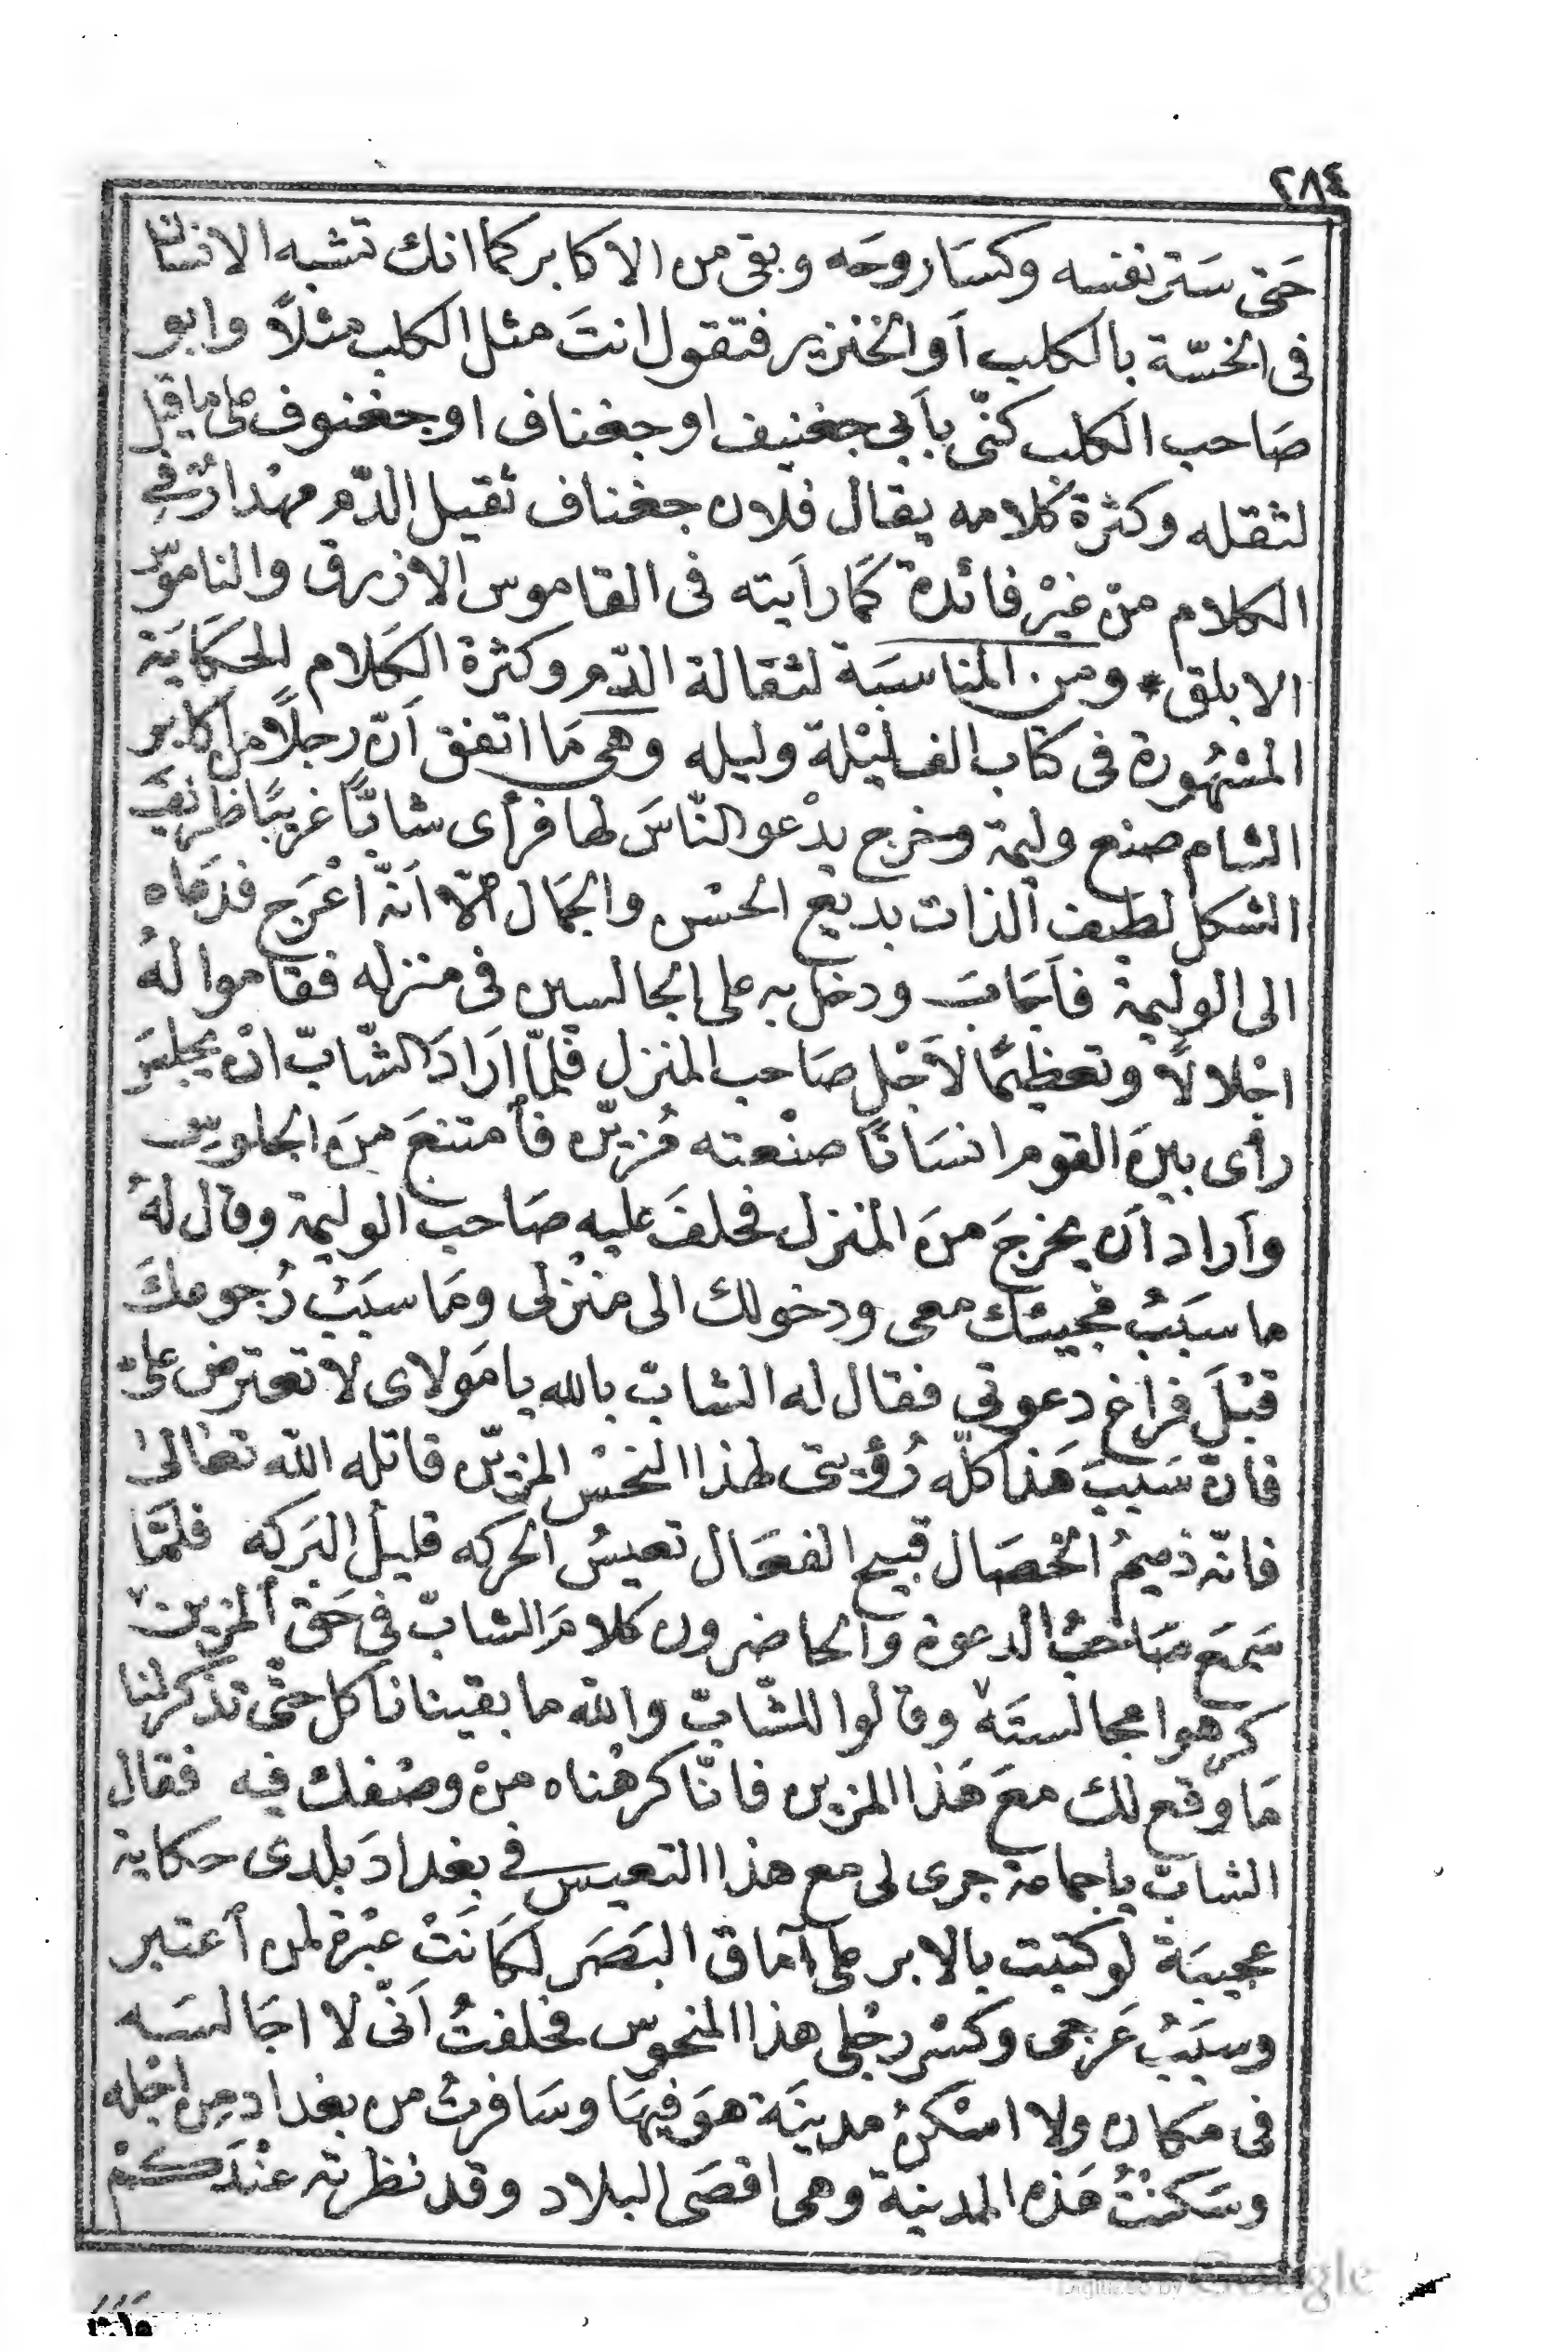 ٢٨٤
حَتى سَتر نفسه وكسَا روحَه وبقى من الاكابر كما انك تشبه الانسان
فى الخسّة بالكلب اَو الخنزير فتقول انتَ مثل الكلب مثلاً وابو
صَاحب الكلب كنّى بأبى جغنيف او جغناف او جغنوف على ما قيل
لثقله وكثرة كلامه يقال فلان جغناف ثقيل الدّم مهْذارٌ فى
الكلام منْ غيْر فائدة كمَا رأيته فى القاموس الازرق والناموس
الابلق * ومن المناسَبَة لثقالة الدّم وكثرة الكلام الحكَايَة
المشهُورة فى كتاب الف ليْلة وليله وهى مَا اتفق اَنّ رجلاً من اكابر
الشام صنع وليمة وخرج يدْعو النّاسَ لها فرأى شابًّا غريبًا ظريفَ
الشكل لطيف الذات بديعَ الحسْن والجمَال الّا اَنّه اعْرَج فدعَاه
الى الوليمة فاَجَابَ ودخل به على الجالسين فى منزله فقاموا لهُ
اجْلالاً وتعظيمًا لاَجْل صَاحب المنزل فلمّا اَرَادَ الشّابّ ان يجلسَ
رأى بينَ القوم انسَانًا صنْعته مُزيّن فأمتنعَ منَ الجلوسِ
وأراد اَن يخرجَ منَ المنزل فحلفَ عليه صَاحب الوليمة وقال لهُ
ما سبَبُ مجيئك معى ودخولك الى منْزلى ومَا سبَبُ رُجوعكَ
قبْلَ فراغ دعوتى فقال له الشابّ بالله يا مَولاى لا تعترض علىّ
فانّ سَببَ هَذا كلّه رُؤيتى لهذا النحْس المزيّن قاتله الله تعَالىٰ
فانّه ذميمُ الخصَال قبيح الفعَال تعيسُ الحركه قليلُ البَركه فلمَّا
سَمعَ صَاحبُ الدعوة والحاضرون كلامَ الشابّ فى حَق المزين
كرهوا مجالستَه وقالوا للشّابّ والله ما بقينا ناكل حتّى تذكر لنا
مَا وقع لك معَ هَذا المزين فانّا كرهْناه منْ وصْفك فيه فقال
الشابّ يا جماعة جرى لى مع هذا التعيس فى بغدادَ بلدى حكاية
عجيبَة لو كتبت بالابر على آماق البَصَر لكَانَتْ عبْرة لمن أعتبر
وسبَبُ عَرَجى وكسْر رجْلى هذا المنحوس فحلفتُ اَنّى لا اجَالسَه
فى مَكان ولا اسْكنُ مدينَة هوَ فيهَا وسَافرتُ من بغداد من اجْله
وسَكنْتُ هَذه المدينة وهى اقصَى البلاد وقد نظرته عنْدَكمْ
Digitized by Google